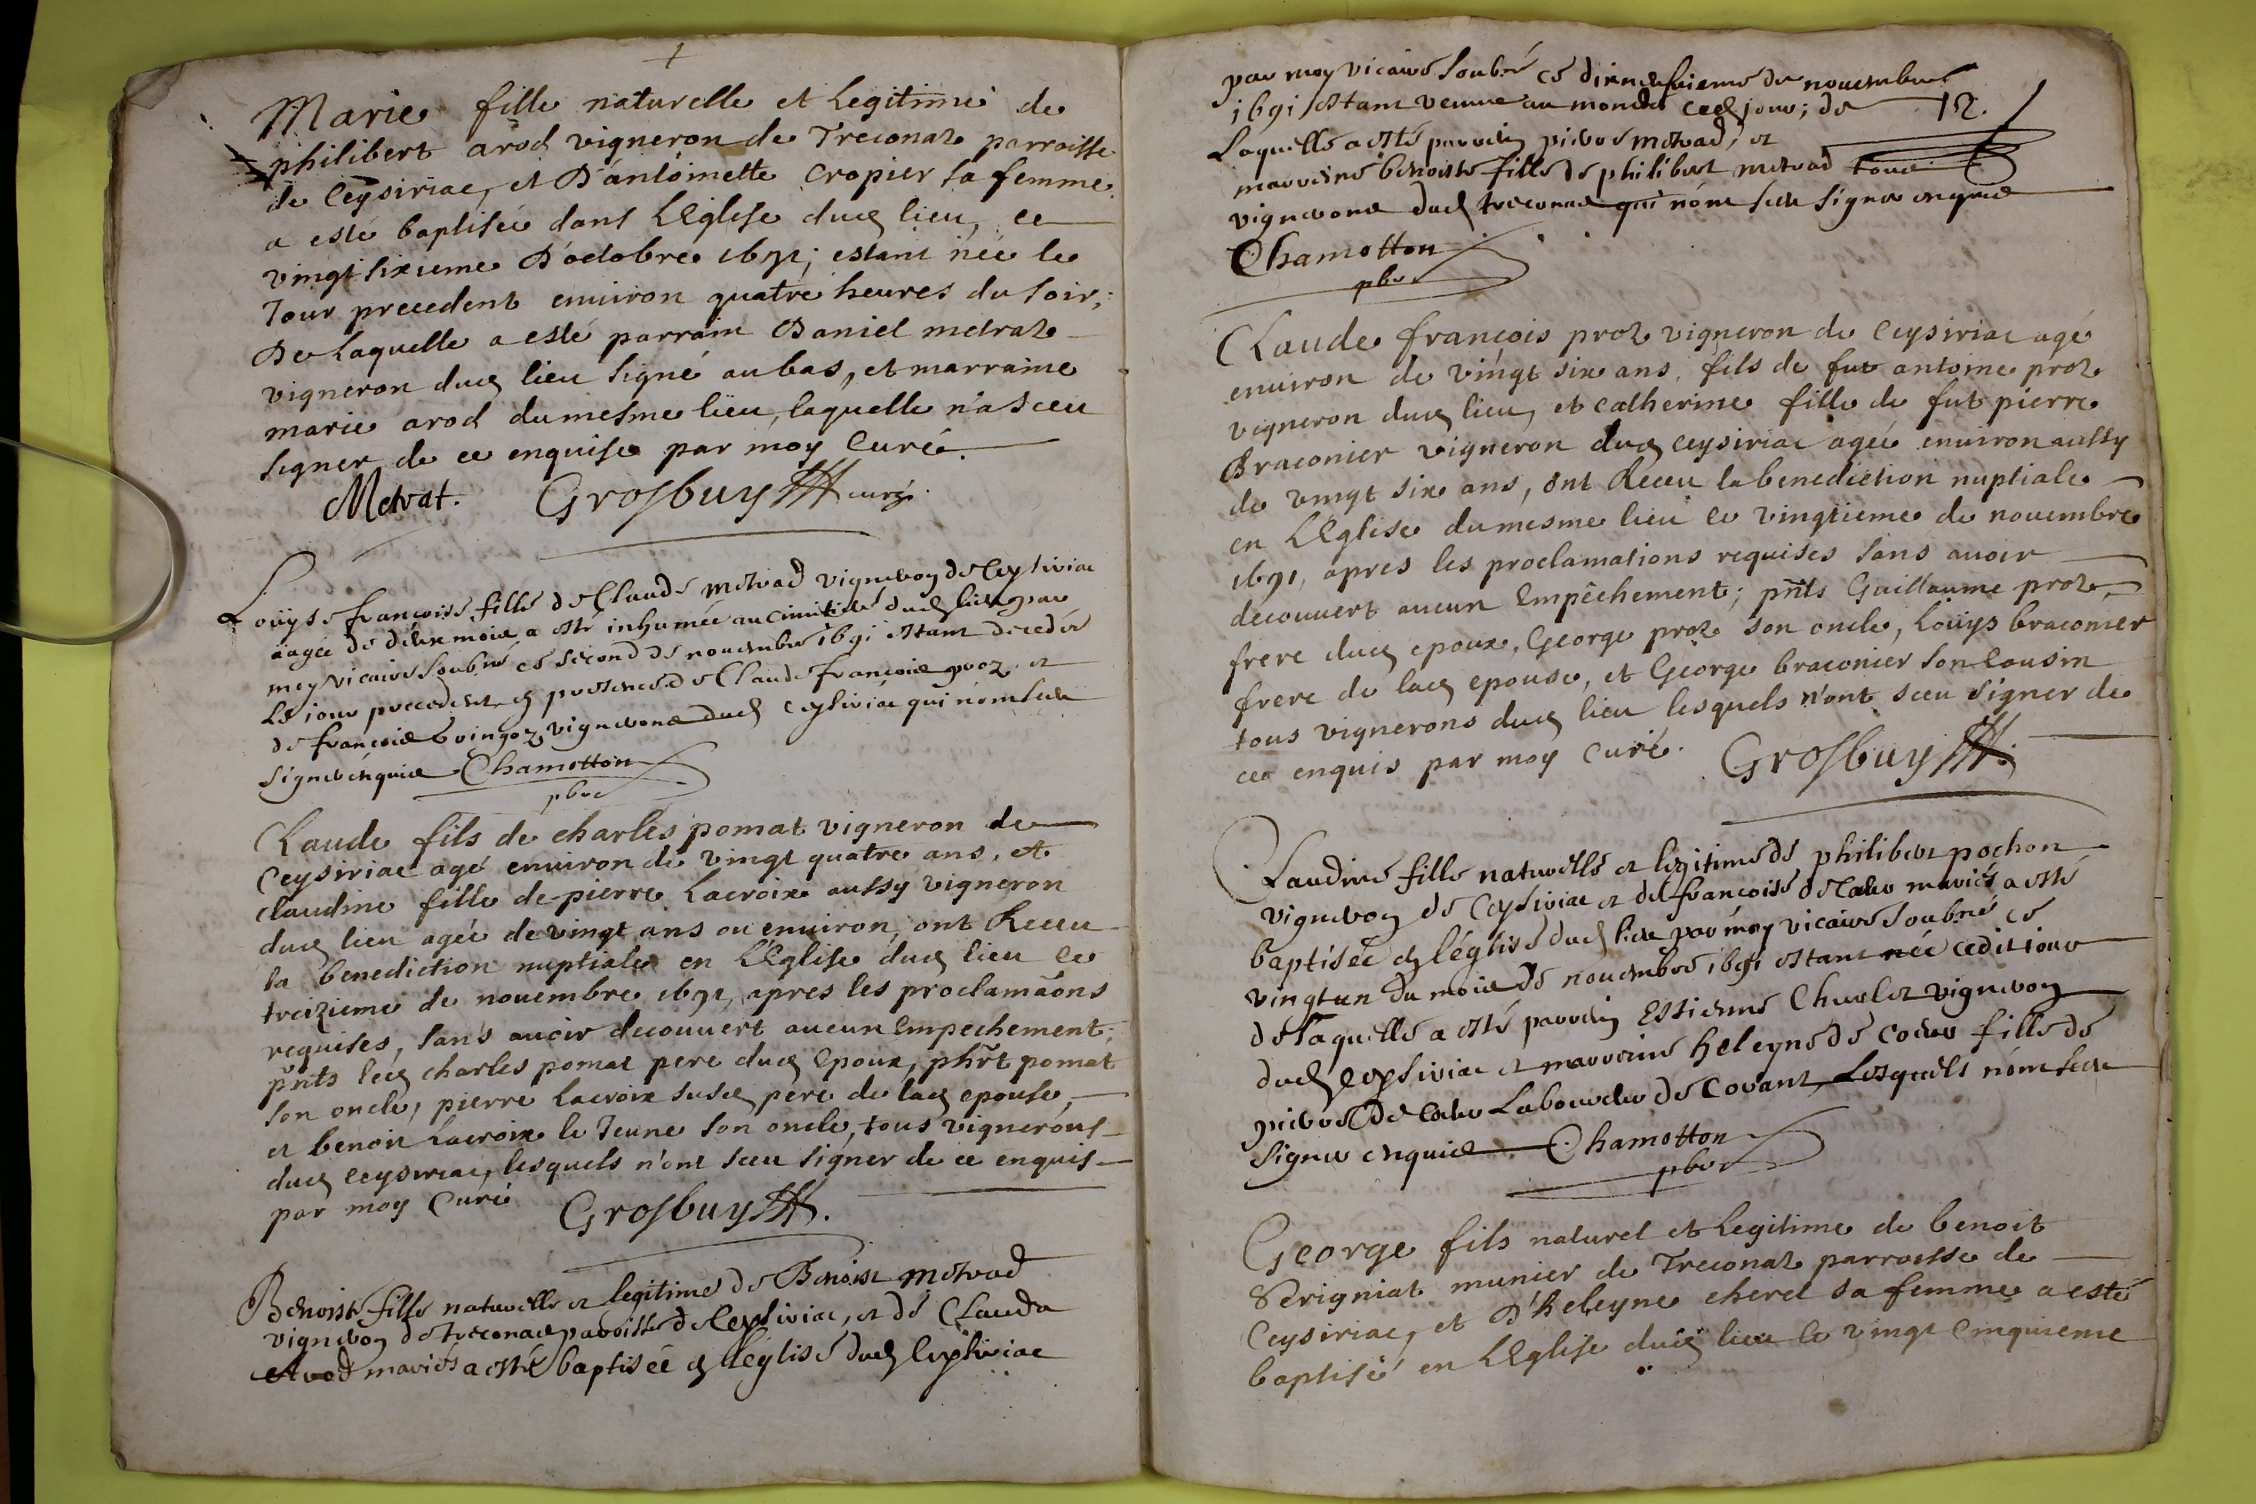 Marie fille naturelle et legitime de
philibert arod vigneron de Treconaz parroisse
de Ceysiriac, et D'antoinette cropier sa femme
a esté baptisée dans L'Eglise dud lieu, ce
vingt sixieme D'octobre 1691; estant née le
Jour precedent environ quatre heures du soir;
De Laquelle a esté parrain Daniel metraz
vigneron dud lieu signé au bas, et marraine
marie arod du mesme lieu, laquelle n'a sceu
signer de ce enquise par moy Curé.
Metrat. Grosbuy curé.
Loüyse françoise fille de Claude metrad vigneron de Ceysiriac
aagée de deux mois a esté inhumée au cimitiere dud lieu par
moy vicaire soubné ce second de novembre 1691 estant decedée
Le jour precedent en presence de Claude françois proz et
de françois vignerons dud Ceysiriac qui n'ont sceu
signer enquis Chamotton
pbre
Claude fils de charles pomat vigneron de
Ceysiriac agé environ de vingt quatre ans, et
claudine fille de pierre Lacroix aussy vigneron
dud lieu agée de vingt ans ou environ, ont Receu
la benediction nuptiale en L'Eglise dud lieu ce
treizieme de novembre 1691, apres les proclamaons
requises, sans avoir decouvert aucun Empechement;
pnts led charles pomat pere dud Epoux, phrt pomat
son oncle, pierre Lacroix susd pere de lad epouse,
et benoit Lacroix le Jeune son oncle, tous vignerons
dud Ceysiriac, lesquels n'ont sceu signer de ce enquis
par moy Curé Grosbuy.
Benoiste fille naturelle et legitime de Benoist metrad
vigneron de treconas paroisse de Ceysiriac, et de Clauda
Arod mariés a esté baptisée en l'église dud Ceysiriac
par moy vicaire soubné ce dixneufvieme de novembre
1691 estant venue au monde ced jour; de 12.
Laquelle a esté parrein pierre metrad, et
marreine benoiste fille de philibert metrad tous
vignerons dud treconas qui n'ont sceu signer enquis
Chamotton
pbre
Claude françois proz vigneron de Ceysiriac agé
environ de vingt six ans, fils de fut antoine proz
vigneron dud lieu, et catherine fille de fut pierre
Braconier vigneron dud ceysiriac agée environ aussy
de vingt six ans, ont Receu la benediction nuptiale
en L'Eglise du mesme lieu ce vingtieme de novembre
1691, apres les proclamations requises sans avoir
decouvert aucun Empêchement; pnts Guillaume proz,
frere dud epoux, George proz son oncle, Loüys braconier
frere de lad epouse, et George braconier son Cousin
tous vignerons dud lieu lesquels n'ont sceu signer de
ce enquis par moy Curé. Grosbuy.
Claudine fille naturelle et legitime de philibert pochon
vigneron de Ceysiriac et de françoise de Coeur mariés a esté
baptisée en léglise dud lieu par moy vicaire soubné ce
vingt un du mois de novembre 1691 estant née cedit jour
de laquelle a esté parrein Estienne Charlet vigneron
dud Ceysiriac et marreine heleyne de Coeur fille de
pierre de Coeur Laboureur de Covant, Lesquels n'ont sceu
signer enquis Chamotton
pbre
George fils naturel et Legitime de benoit
Perigniat munier de Treconaz parroisse de
Ceysiriac, et D'heleyne cherel sa femme a esté
baptisé en L'Eglise dud lieu le vingt Cinquieme